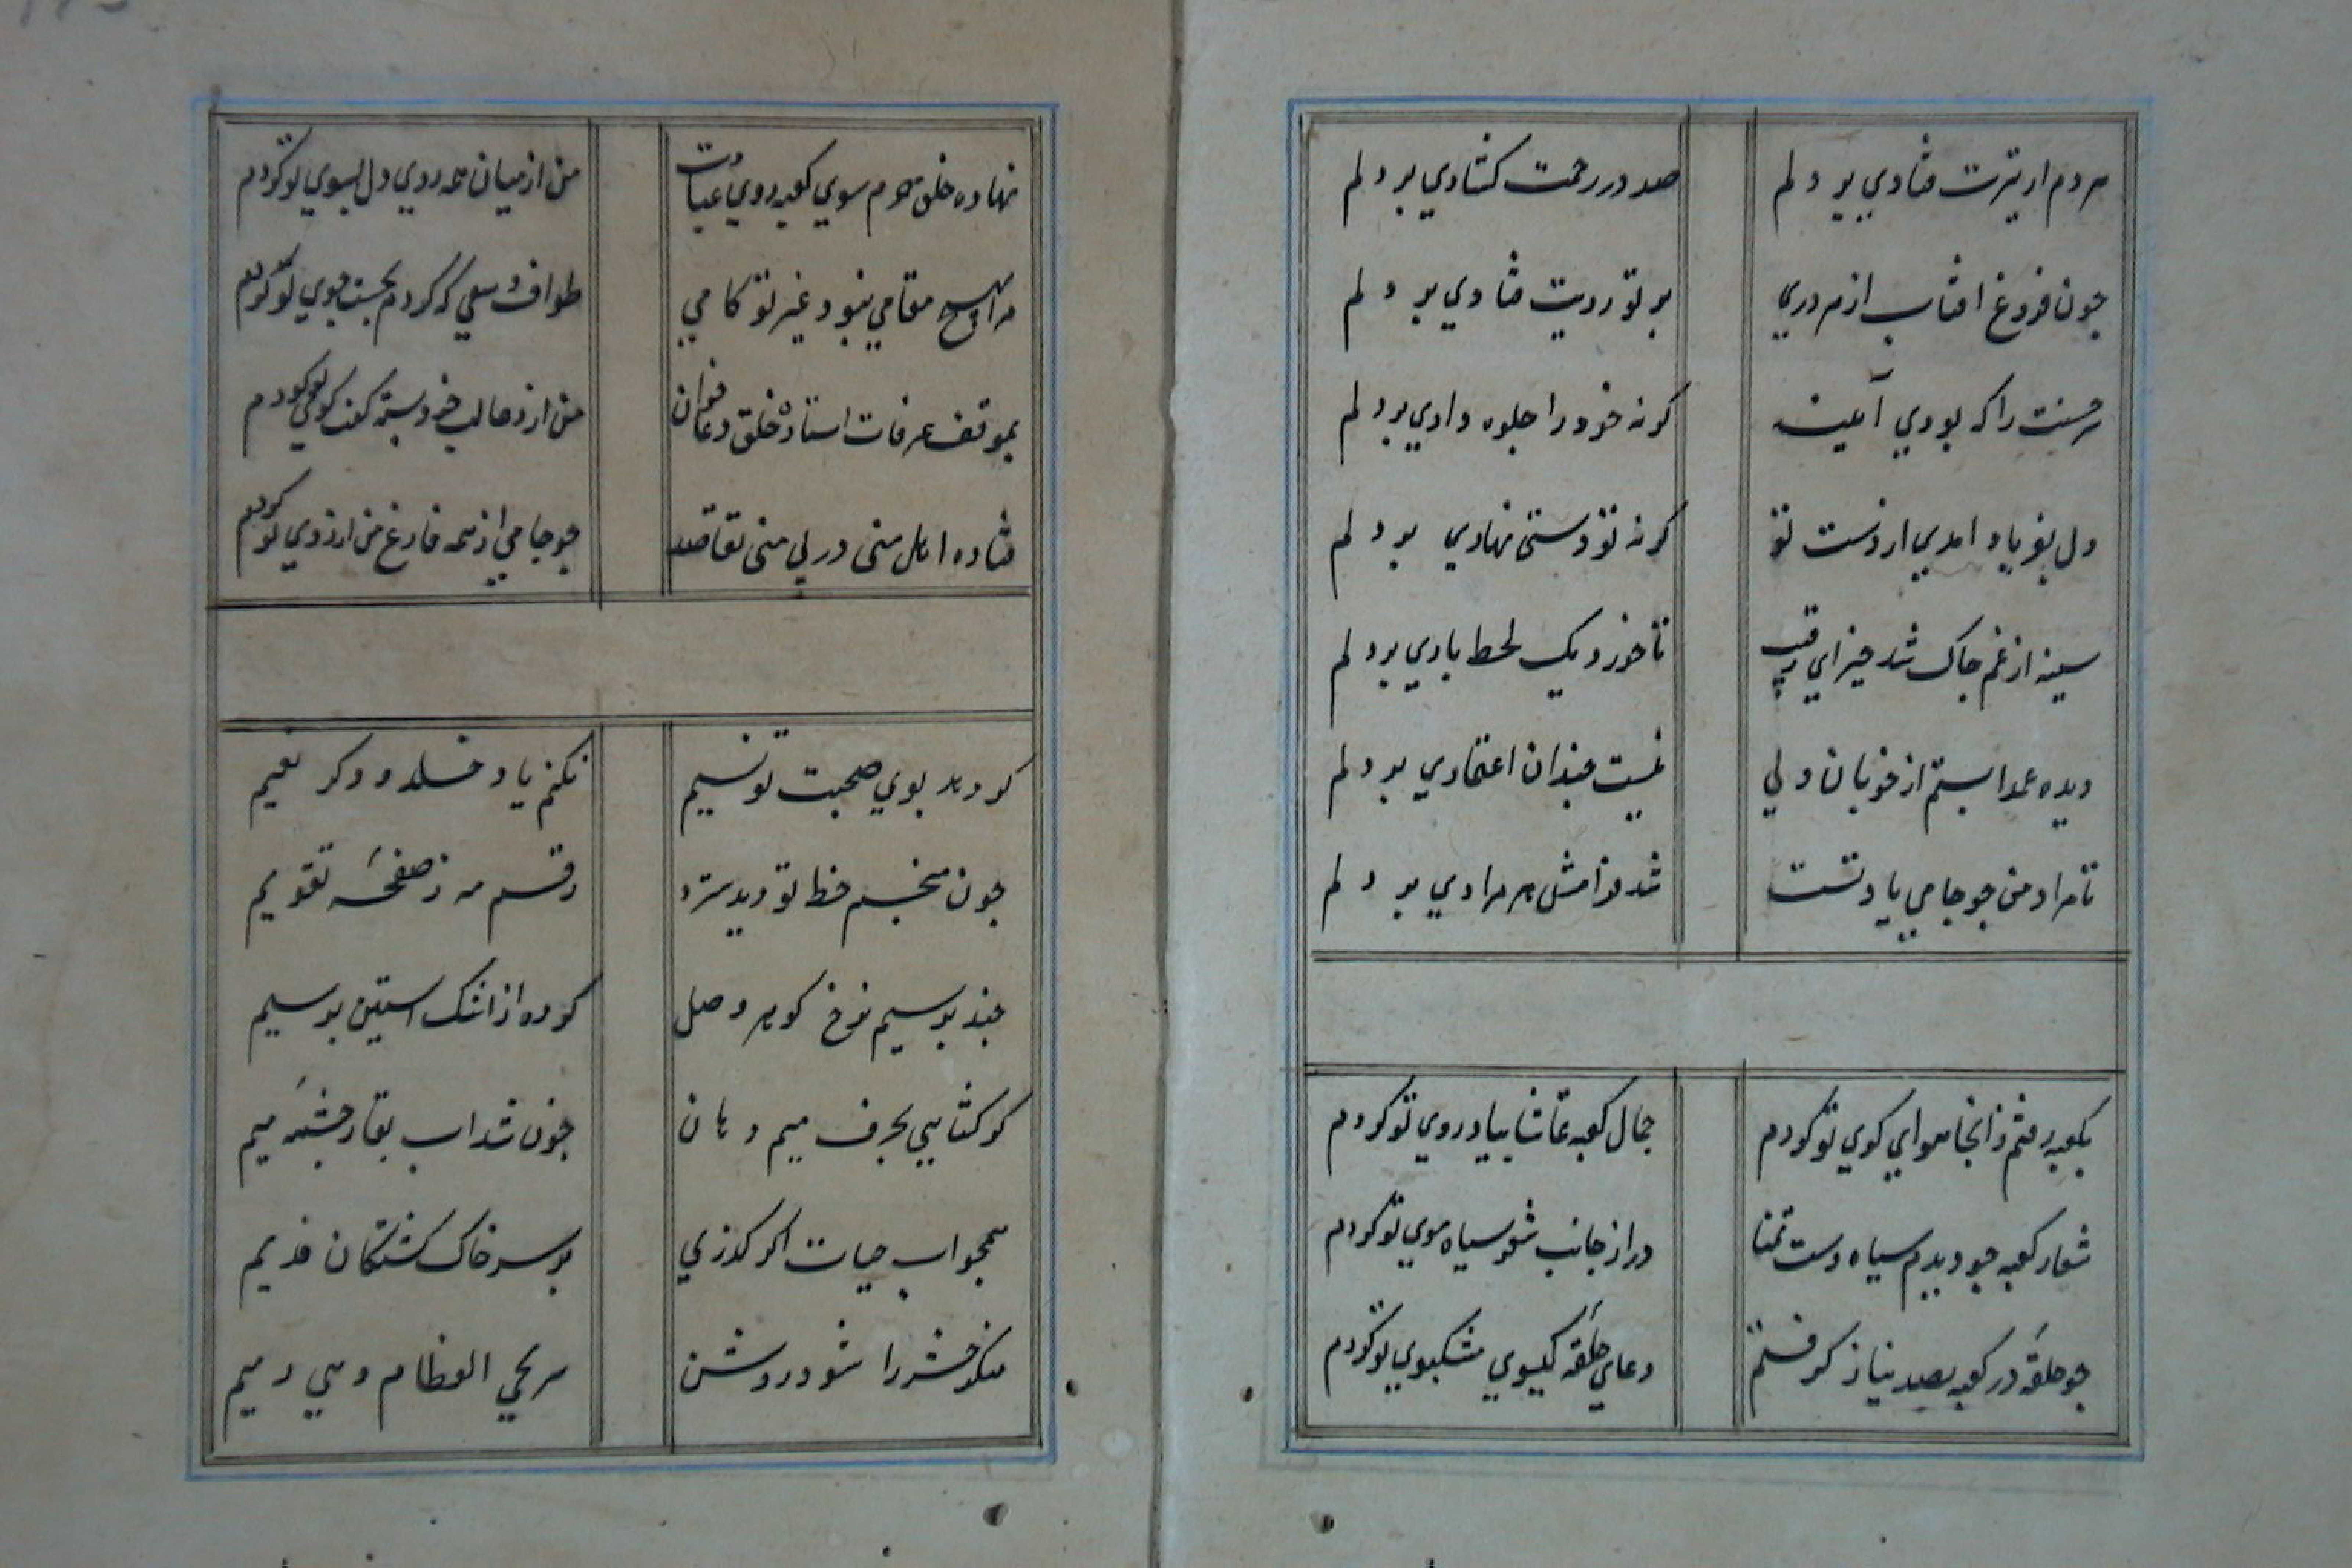 هردم از تیرت فتادی بر دلم صد در رحمت کشادی بر دلم
چون فروغ افتاب از هر دری بر تو رویت فتادی بر دلم
حسنت را که بودی آیینه کرنه خود را جلوه دادی بر دلم
دل بفریاد امدی از دست تو کرنه تو دستی نهادی بر دلم
سینه از غم چاک شد خیز ای رقیب تا خورد یک لحظ بادی بر دلم
دیده عمدا بستم از خوبان ولی نیست چندان اعتمادی بر دلم
تا مراد من چو جامی یاد تست شد فرامش هر مرادی بر دلم
بکعبه رفتم و ز انجا هوای کوی تو کردم جمال کعبه تماشا بیاد روی تو کردم
شعار کعبه چو دیدم سیاه دست تمنا دراز جانب شعر سیاه موی تو کردم
چو حلقهٔ در کعبه بصد نیاز کرفتم دعای حلقهٔ کیسوی مشکبوی تو کردم
نهاده خلق حرم سوی کعبه روی عبادت من از میان همه روی دل بسوی تو کردم
مرا بهیچ مقامی نبود غیر تو کامی طواف و سعی که کردم بجست جوی تو کردم
بموقف عرفات استاده خلق دعا خوان من از دعا لب خود بسته کفت کوی تو کردم
فتاده اهل منی در پی منی و مقاصد چو جامی از همه فارغ من ارزوی تو کردم
کر دهد بوی صحبت تو نسیم نکنم یاد خلد و ذکر نعیم
چون منجم خط تو دید سترد رقم مه ز صفحهٔ تقویم
چند پرسیم نرخ کوهر وصل کرده از اشک استین پر سیم
کر کشایی بحرف میم دهان خون شد اب بقا ز چشمهٔ میم
همچو اب حیات اکر کذری بر سر خاک کشتکان قدیم
منکر حشر را شود روشن سر یحی العظام وهی رمیم